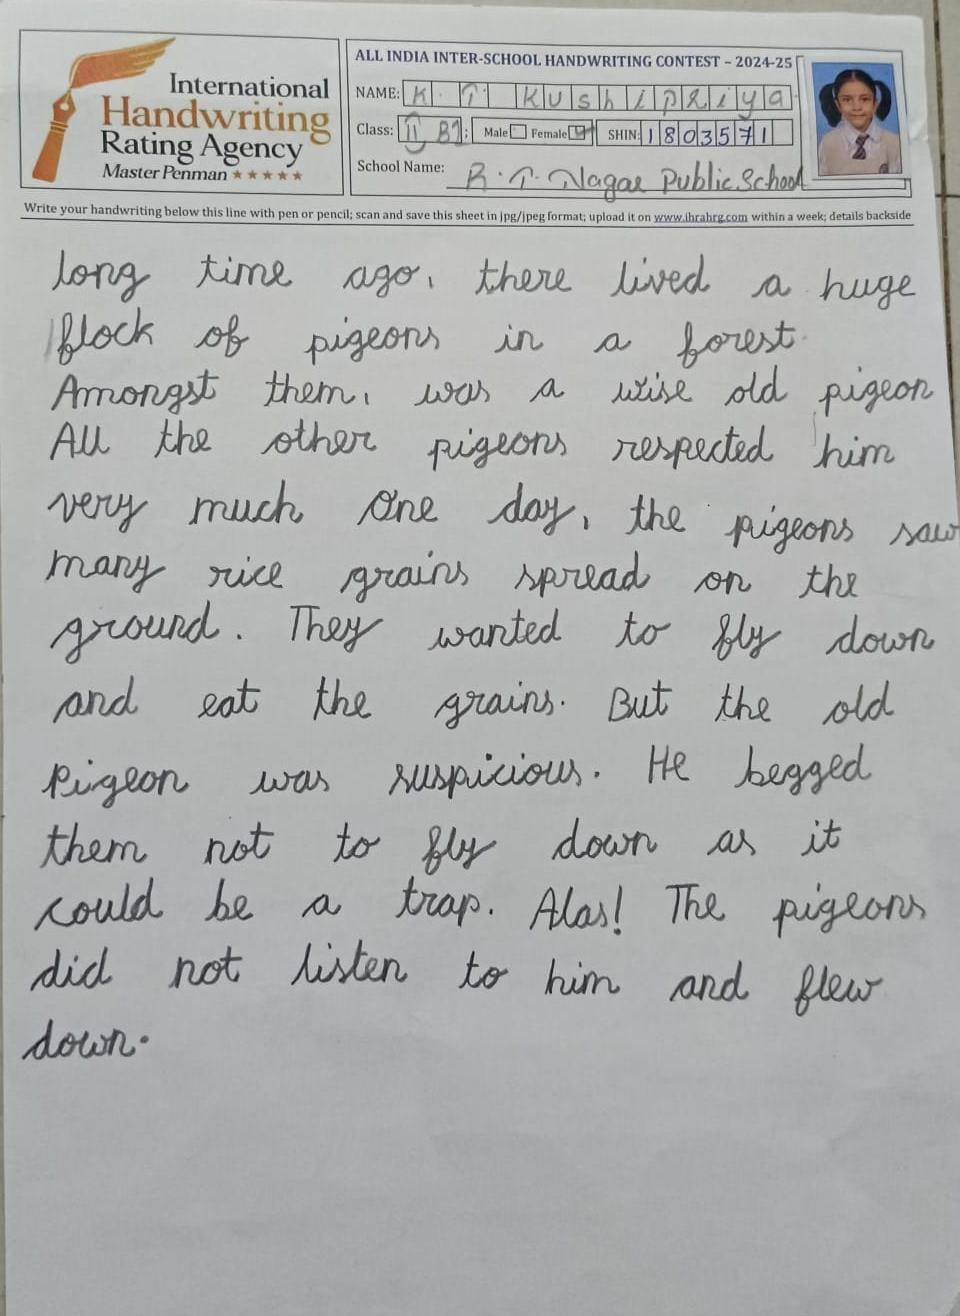 International
Handwriting
Rating Agency
Master Penman ★★★★★
ALL INDIA INTER-SCHOOL HANDWRITING CONTEST – 2024-25
NAME: K. T Kushipriya
Class: II B1: Male Female SHIN: 1803571
School Name: R. T. Nagar Public School
Write your handwriting below this line with pen or pencil; scan and save this sheet in jpg/jpeg format; upload it on www.ihrahrg.com within a week; details backside
long time ago, there lived a huge
flock of pigeons in a forest.
Amongst them, was a wise old pigeon
All the other pigeons respected him
very much One day, the pigeons saw
many rice grains spread on the
ground. They wanted to fly down
and eat the grains. But the old
Pigeon was suspicious. He begged
them not to fly down as it
could be a trap. Alas! The pigeons
did not listen to him and flew
down.